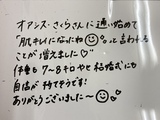 オアシス・さくらさんに通い始めて
「肌キレイになったね😊」って言われる
ことが増えました♡
体重も7〜8キロやせ結婚式にも
自信が持てそうです!
ありがとうございました〜😊♡